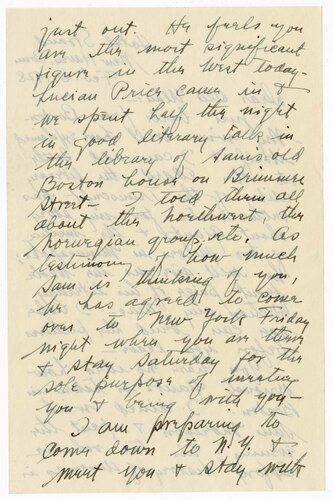 just out. He feels you
are the most significant
figure in the west today.
Lucian Price came in &
we spent half the night
in good literary talk in
the library of Sam's old
Boston house on Brimmer
Street — I told them all
about the Northwest, the
Norwegian group, etc. As
testimony of how much
Sam is thinking of you,
he has agreed to come
over to New York Friday
night when you are there
& stay Saturday for the
sole purpose of meeting
you & being with you —
I am preparing to
come down to N.Y. &
meet you & stay with